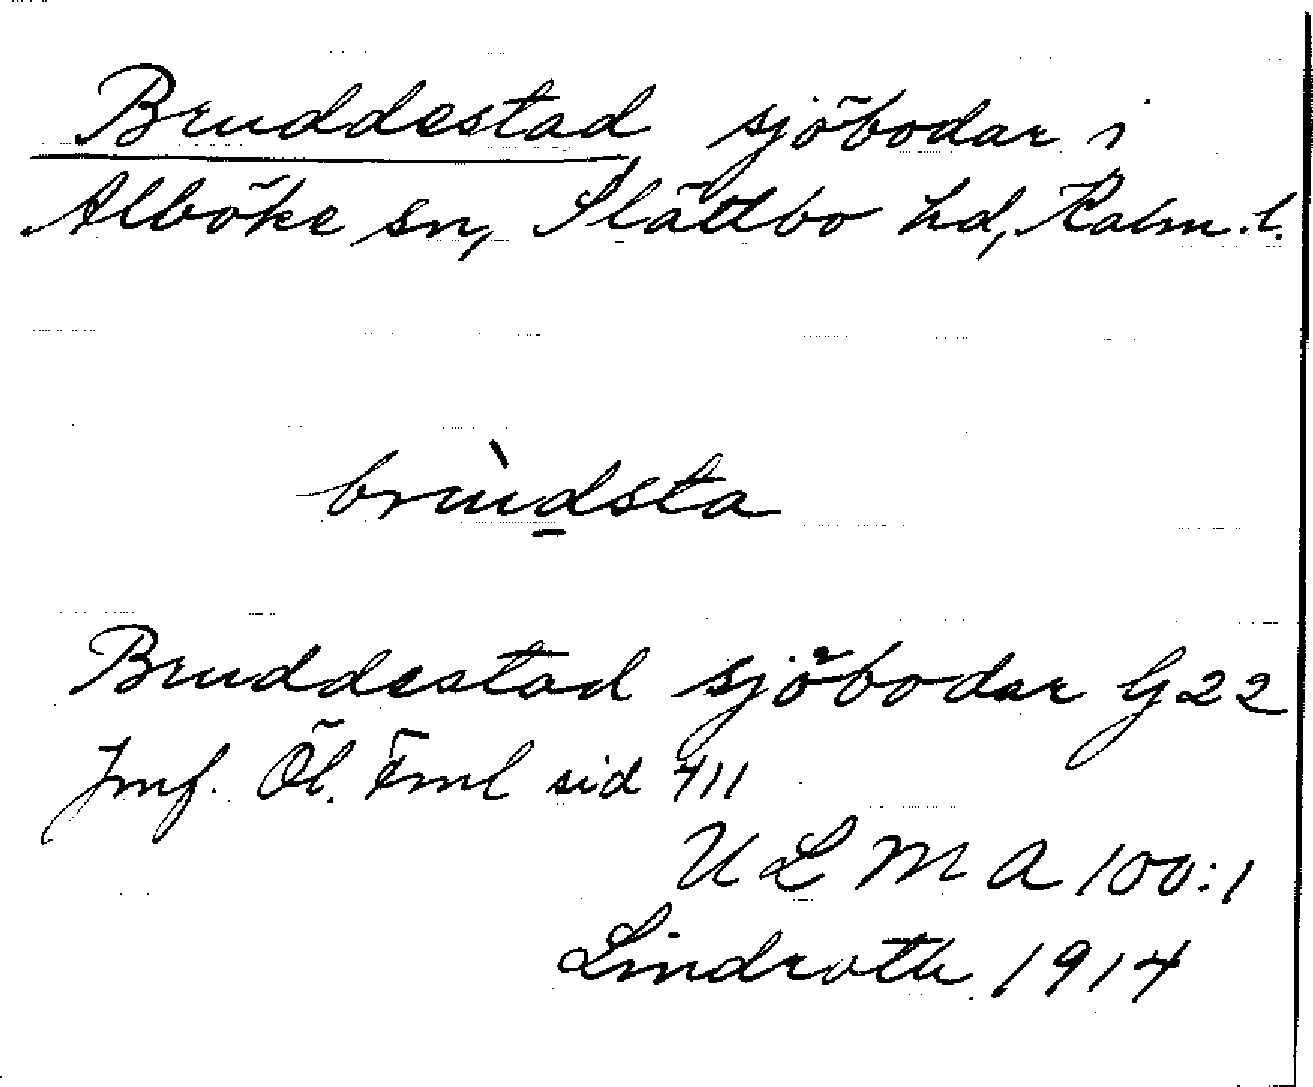 Bruddestad sjöbodar i
Alböke sn, Slättbo hd, Kalm. l.
brùd̲sta
Bruddestad sjöbodar G22
Jmf. Öl. Fml sid 411
ULMA 100:1
Lindroth 1914